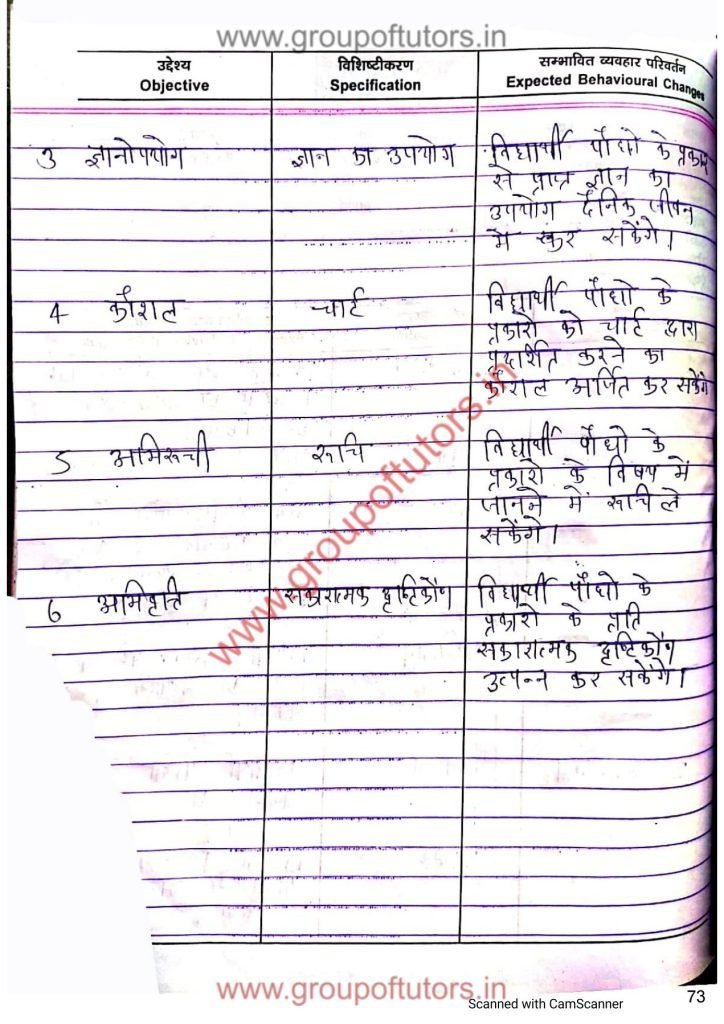 www.groupoftutors.in
उद्देश्य विशिष्टीकरण सम्भावित व्यवहार परिवर्तन
Objective Specification Expected Behavioural Changes
3 ज्ञानोपयोग ज्ञान का उपयोग विद्यार्थी पौधो के प्रकार
से प्राप्त ज्ञान का
उपयोग दैनिक जीवन
में कर सकेंगे।
4 कौशल चार्ट विद्यार्थी पौधो के
प्रकारो को चार्ट द्वारा
प्रदर्शित करने का
कौशल अर्जित कर सकेंगे
5 अभिरूची रूचि विद्यार्थी पौधो के
प्रकारो के विषय में
जानने में रूचि ले
सकेंगे।
6 अभिवृत्ति सकारात्मक दृष्टिकोंण विद्यार्थी पौधो के
प्रकारो के प्रति
सकारात्मक दृष्टिकोंण
उत्पन्न कर सकेंगे।
www.groupoftutors.in
www.groupoftutors.in
Scanned with CamScanner
73